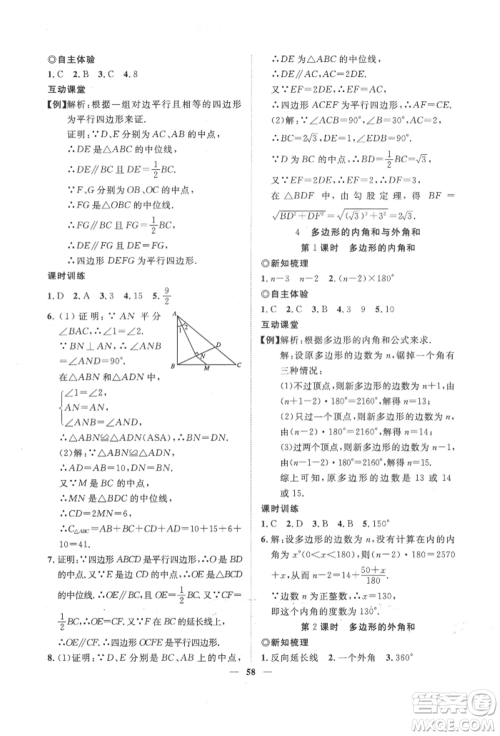 ◎自主体验
1. C 2. B 3. C 4. 8
互动课堂
【例】解析：根据一组对边平行且相等的四边形
为平行四边形来证.
证明：∵D、E分别为AC、AB的中点，
∴DE是△ABC的中位线，
∴DE∥BC，DE=1/2BC.
∵F、G分别为OB、OC的中点，
∴FG是△OBC的中位线，
∴FG∥BC，FG=1/2BC.
∴DE∥FG，DE=FG，
∴四边形DEFG为平行四边形.
课时训练
1. D 2. A 3. 3 4. 15 5. 9/2
6. (1)证明：∵AN平分
∠BAC，∴∠1=∠2.
∵BN⊥AN，∴∠ANB
=∠AND=90°.
在△ABN和△ADN中，
∠1=∠2
AN=AN
∠ANB=∠AND
∴△ABN≌△ADN(ASA).∴BN=DN.
(2)解：∵△ABN≌△ADN，
∴AD=AB=10，DN=NB.
又∵M是BC的中点，
∴MN是△BDC的中位线，
∴CD=2MN=6，
∴C△ABC=AB+BC+CD+AD=10+15+6+
10=41.
7. 证明：∵四边形ABCD是平行四边形，∴OA
=OC.又∵AE=BE，∴OE是△ABC的中
位线，∴OE∥BC，OE=1/2BC.又∵CF=
1/2BC，∴OE=CF.又∵点F在BC的延长线
上，∴OE∥CF，∴四边形OCFE是平行四边形.
8. (1)证明：∵D、E分别是边BC、AB的中点，
∴DE为△ABC的中位线，
∴DE∥AC，AC=2DE.
又∵EF=2DE，∴EF∥AC，EF=AC，
∴四边形ACEF为平行四边形.
(2)解：∵EF∥AC，∠ACB=90°，
∴∠BDF=∠ACB=90°.
∵BC=2√3，D为BC的中点，∴BD=√3.
又∵EF=2DE=2，∴DF=EF+DE=3.
在△BDF中，由勾股定理，得BF=
√BD²+DF²=√(√3)²+3²=2√3.
4 多边形的内角和与外角和
第1课时 多边形的内角和
◎新知梳理
1. n-3 n-2 2. (n-2)×180°
◎自主体验
1. C 2. D 3. C 4. 3 9 5. 10
互动课堂
【例】解析：根据多边形的内角和公式来求.
解：设原多边形的边数为n，锯掉一个角有
三种情况：
(1)不过顶点，则新多边形的边数为n+1，由
(n+1-2)·180°=2160°，得n=13；
(2)过一个顶点，则新多边形的边数为n，
由(n-2)·180°=2160°，得n=14；
(3)过两个顶点，则新多边形的边数为n-1，
由(n-1-2)·180°=2160°，得n=15.
综上所述，原多边形的边数为13或14
或15.
课时训练
1. C 2. D 3. D 4. 8 5. 150°
6. 解：设这个多边形的边数为n，没有计算在内的内
角为x°(0<x<180)，则(n-2)·180=2570
+x，所以n=14+(50+x)/180.
∵边数n为正整数，∴x=130，n=15.
∴该多边形的边数是15.
第2课时 多边形的外角和
◎新知梳理
1. 反向延长线 2. 一个外角 3. 360°
58